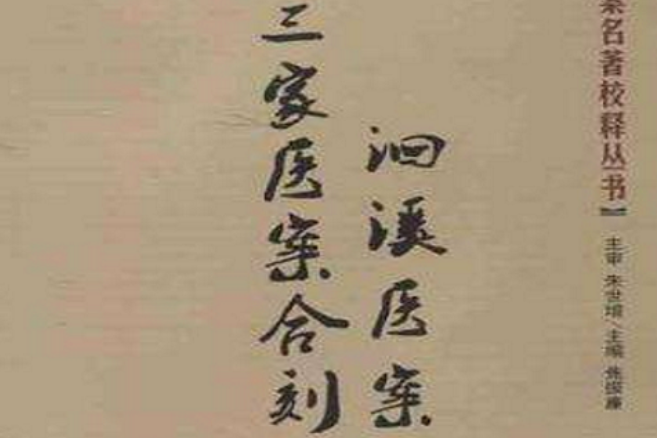 三家医案合刻
洄溪医案
案名著校释丛书】
主审 朱世增/主编 焦振廉